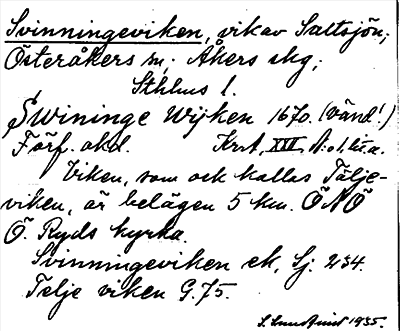 Svinningeviken, vik av Saltsjön;
Österåkers sn; Åkers skg;
Sthlms l.
Swininge Wijken 1670. (vänd!)
Förf. okd. Krit. XVI. N:o 1. lit. a.
Viken, som ock kallas Tälje-
viken, är belägen 5 km. ÖNÖ
Ö. Ryds kyrka.
Svinningeviken ek, Sj. 234.
Telje viken G. 75.
S. Lundquist 1935.